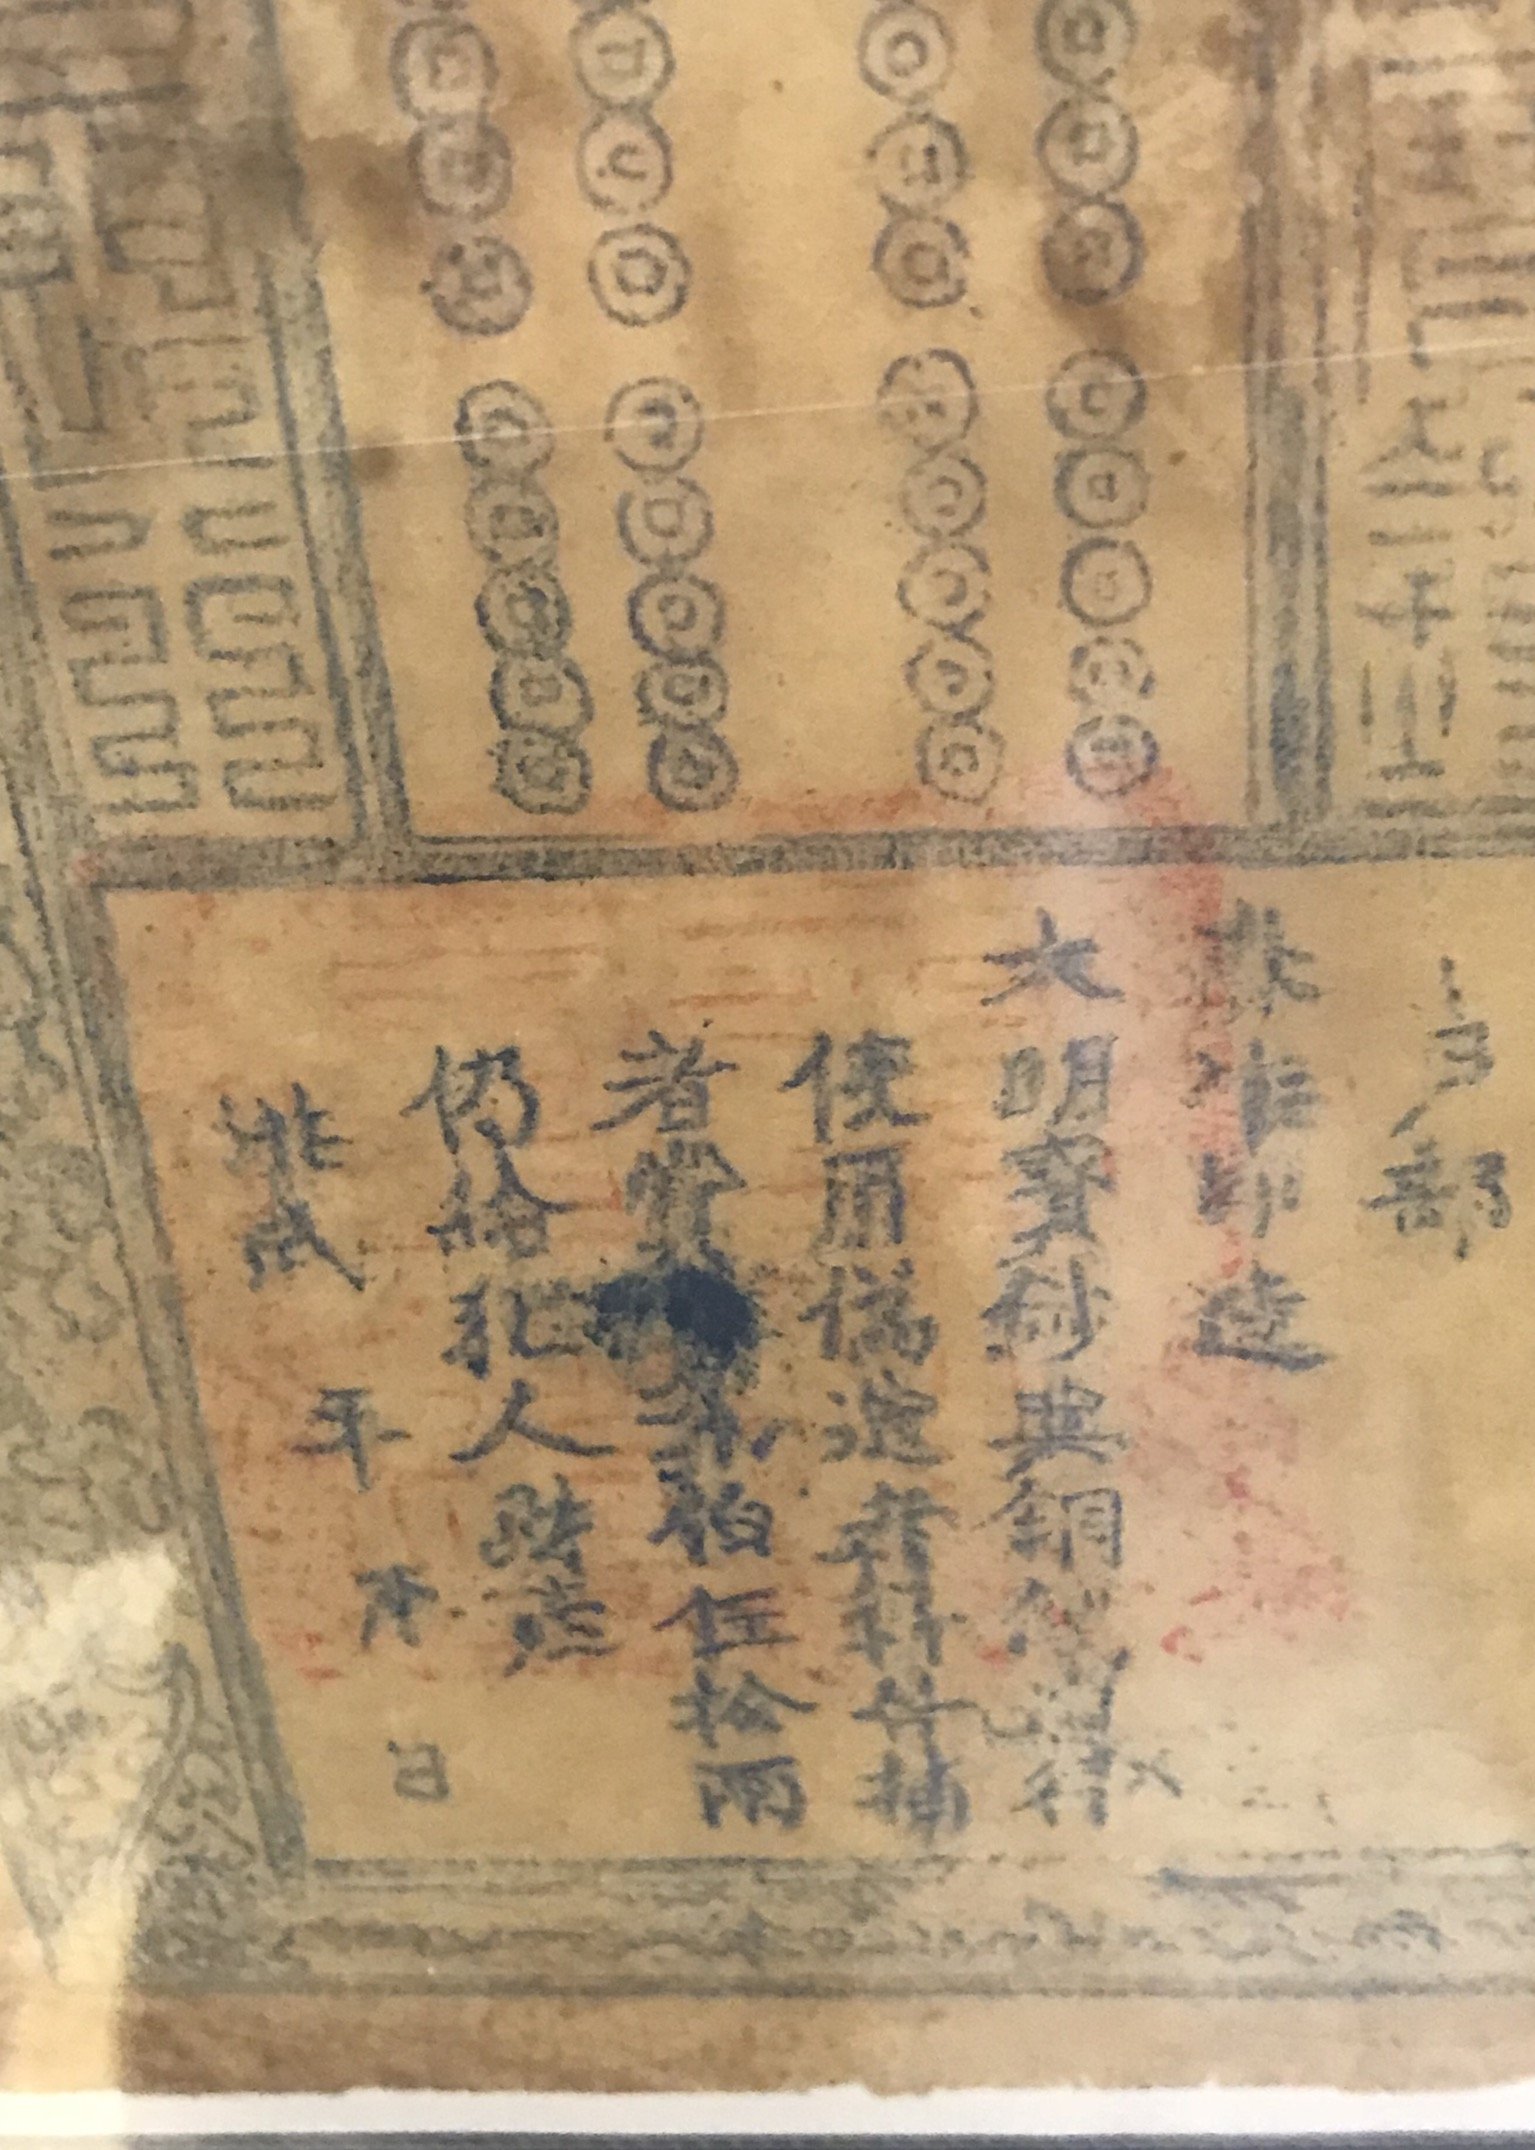 戶部
奏准印造
大明寶鈔與銅錢通行
使用偽造者斬告捕
者賞佰伍拾兩
仍給犯人財產
洪武 年 月 日